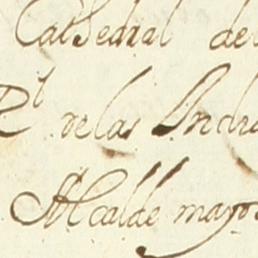 Cathedral de
Rl de las Indi
Alcalde mayo